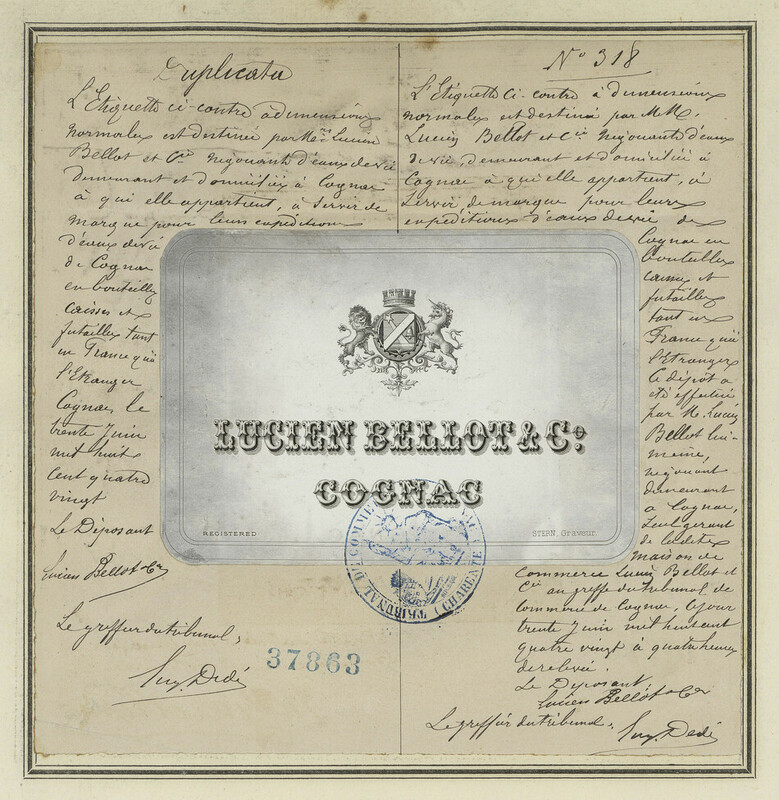 Duplicata
L'Etiquette ci-contre à dimensions
normales est destinée par Mrs Lucien
Bellot et Cie négociants d'eaux de vie
demeurant et domiciliés à Cognac
à qui elle appartient, à servir de
marque pour leurs expéditions
d'eaux de vie
de Cognac
en bouteilles
caisses et
futailles tant
en France qu'à
l'Etranger
Cognac, le
trente Juin
mil huit
cent quatre
vingt
Le Déposant
Lucien Bellot & Co
Le greffier du tribunal,
Eug. Dedé
37863
No 318
L'Etiquette ci-contre à dimensions
normales est destinée par MM.
Lucien Bellot et Cie négociants d'eaux
de vie, demeurant et domiciliés à
Cognac à qui elle appartient, à
servir de marque pour leurs
expéditions d'eaux de vie de
Cognac en
bouteilles
caisses et
futailles
tant en
France qu'à
l'Etranger
Ce dépôt a
été effectué
par M. Lucien
Bellot lui-
même,
négociant
demeurant
à Cognac,
seul gérant
de la dite
maison de
Commerce Lucien Bellot et
Cie au greffe du tribunal de
commerce de Cognac, ce jour
trente Juin mil huit cent
quatre vingt à quatre heures
de relevée.
Le Déposant
Lucien Bellot & Co
Le greffier du tribunal,
Eug. Dedé
LUCIEN BELLOT & Co.
COGNAC
REGISTERED
STERN, Graveur.
TRIBUNAL DE COMMERCE
(CHARENTE)